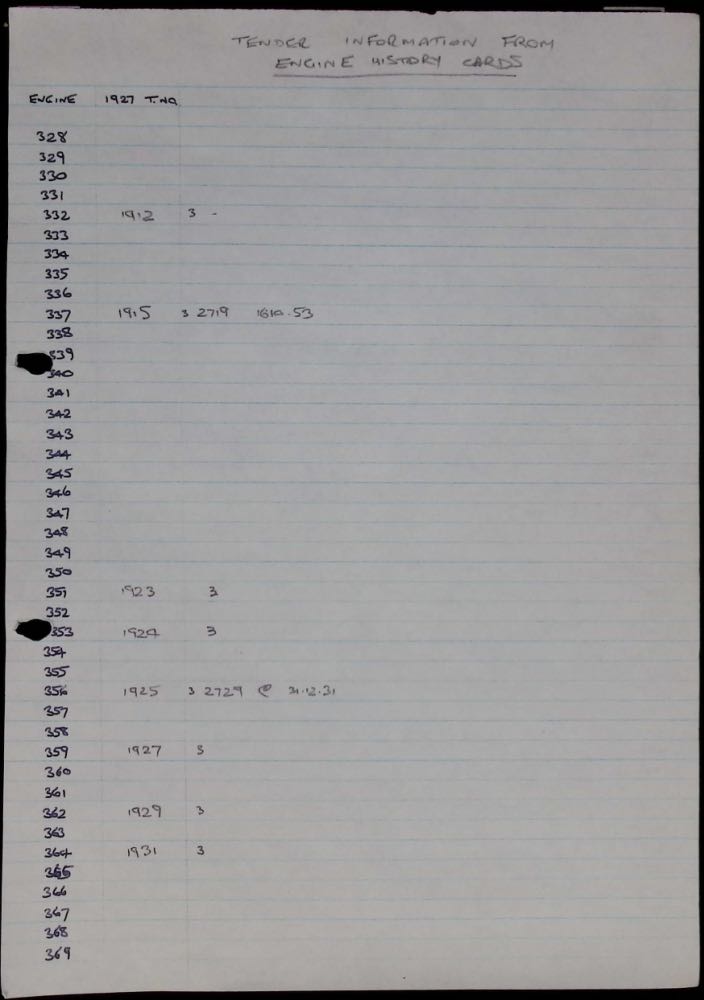 TENDER INFORMATION FROM
ENGINE HISTORY CARDS
ENGINE 1927 T.NO.
328
329
330
331
332 1912 3 -
333
334
335
336
337 1915 3 2719 1610.53
338
339
340
341
342
343
344
345
346
347
348
349
350
351 1923 3
352
353 1924 3
354
355
356 1925 3 2729 @ 31.12.31
357
358
359 1927 3
360
361
362 1929 3
363
364 1931 3
365
366
367
368
369